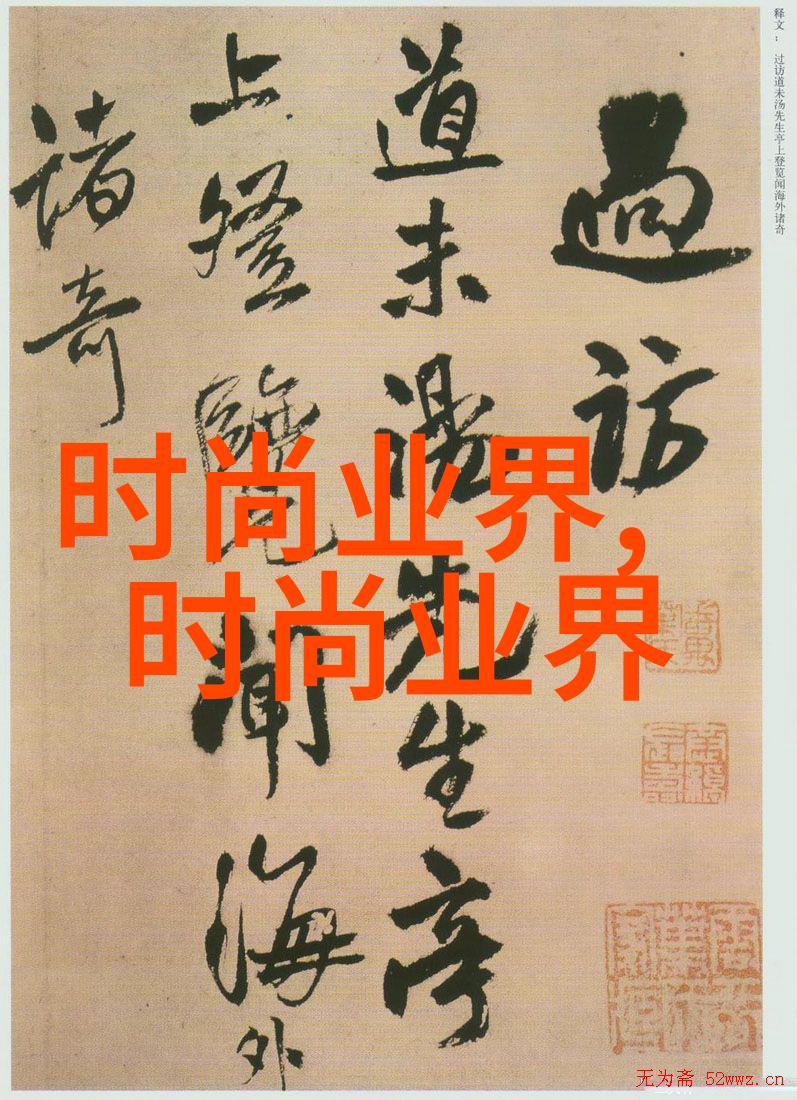 释文： 过访道未汤先生亭上登览闻海外诸奇
過訪
道未湯先生亭
上登覽聞海外
諸奇
时尚业界,
时尚业界
无为斋 52wwz.cn